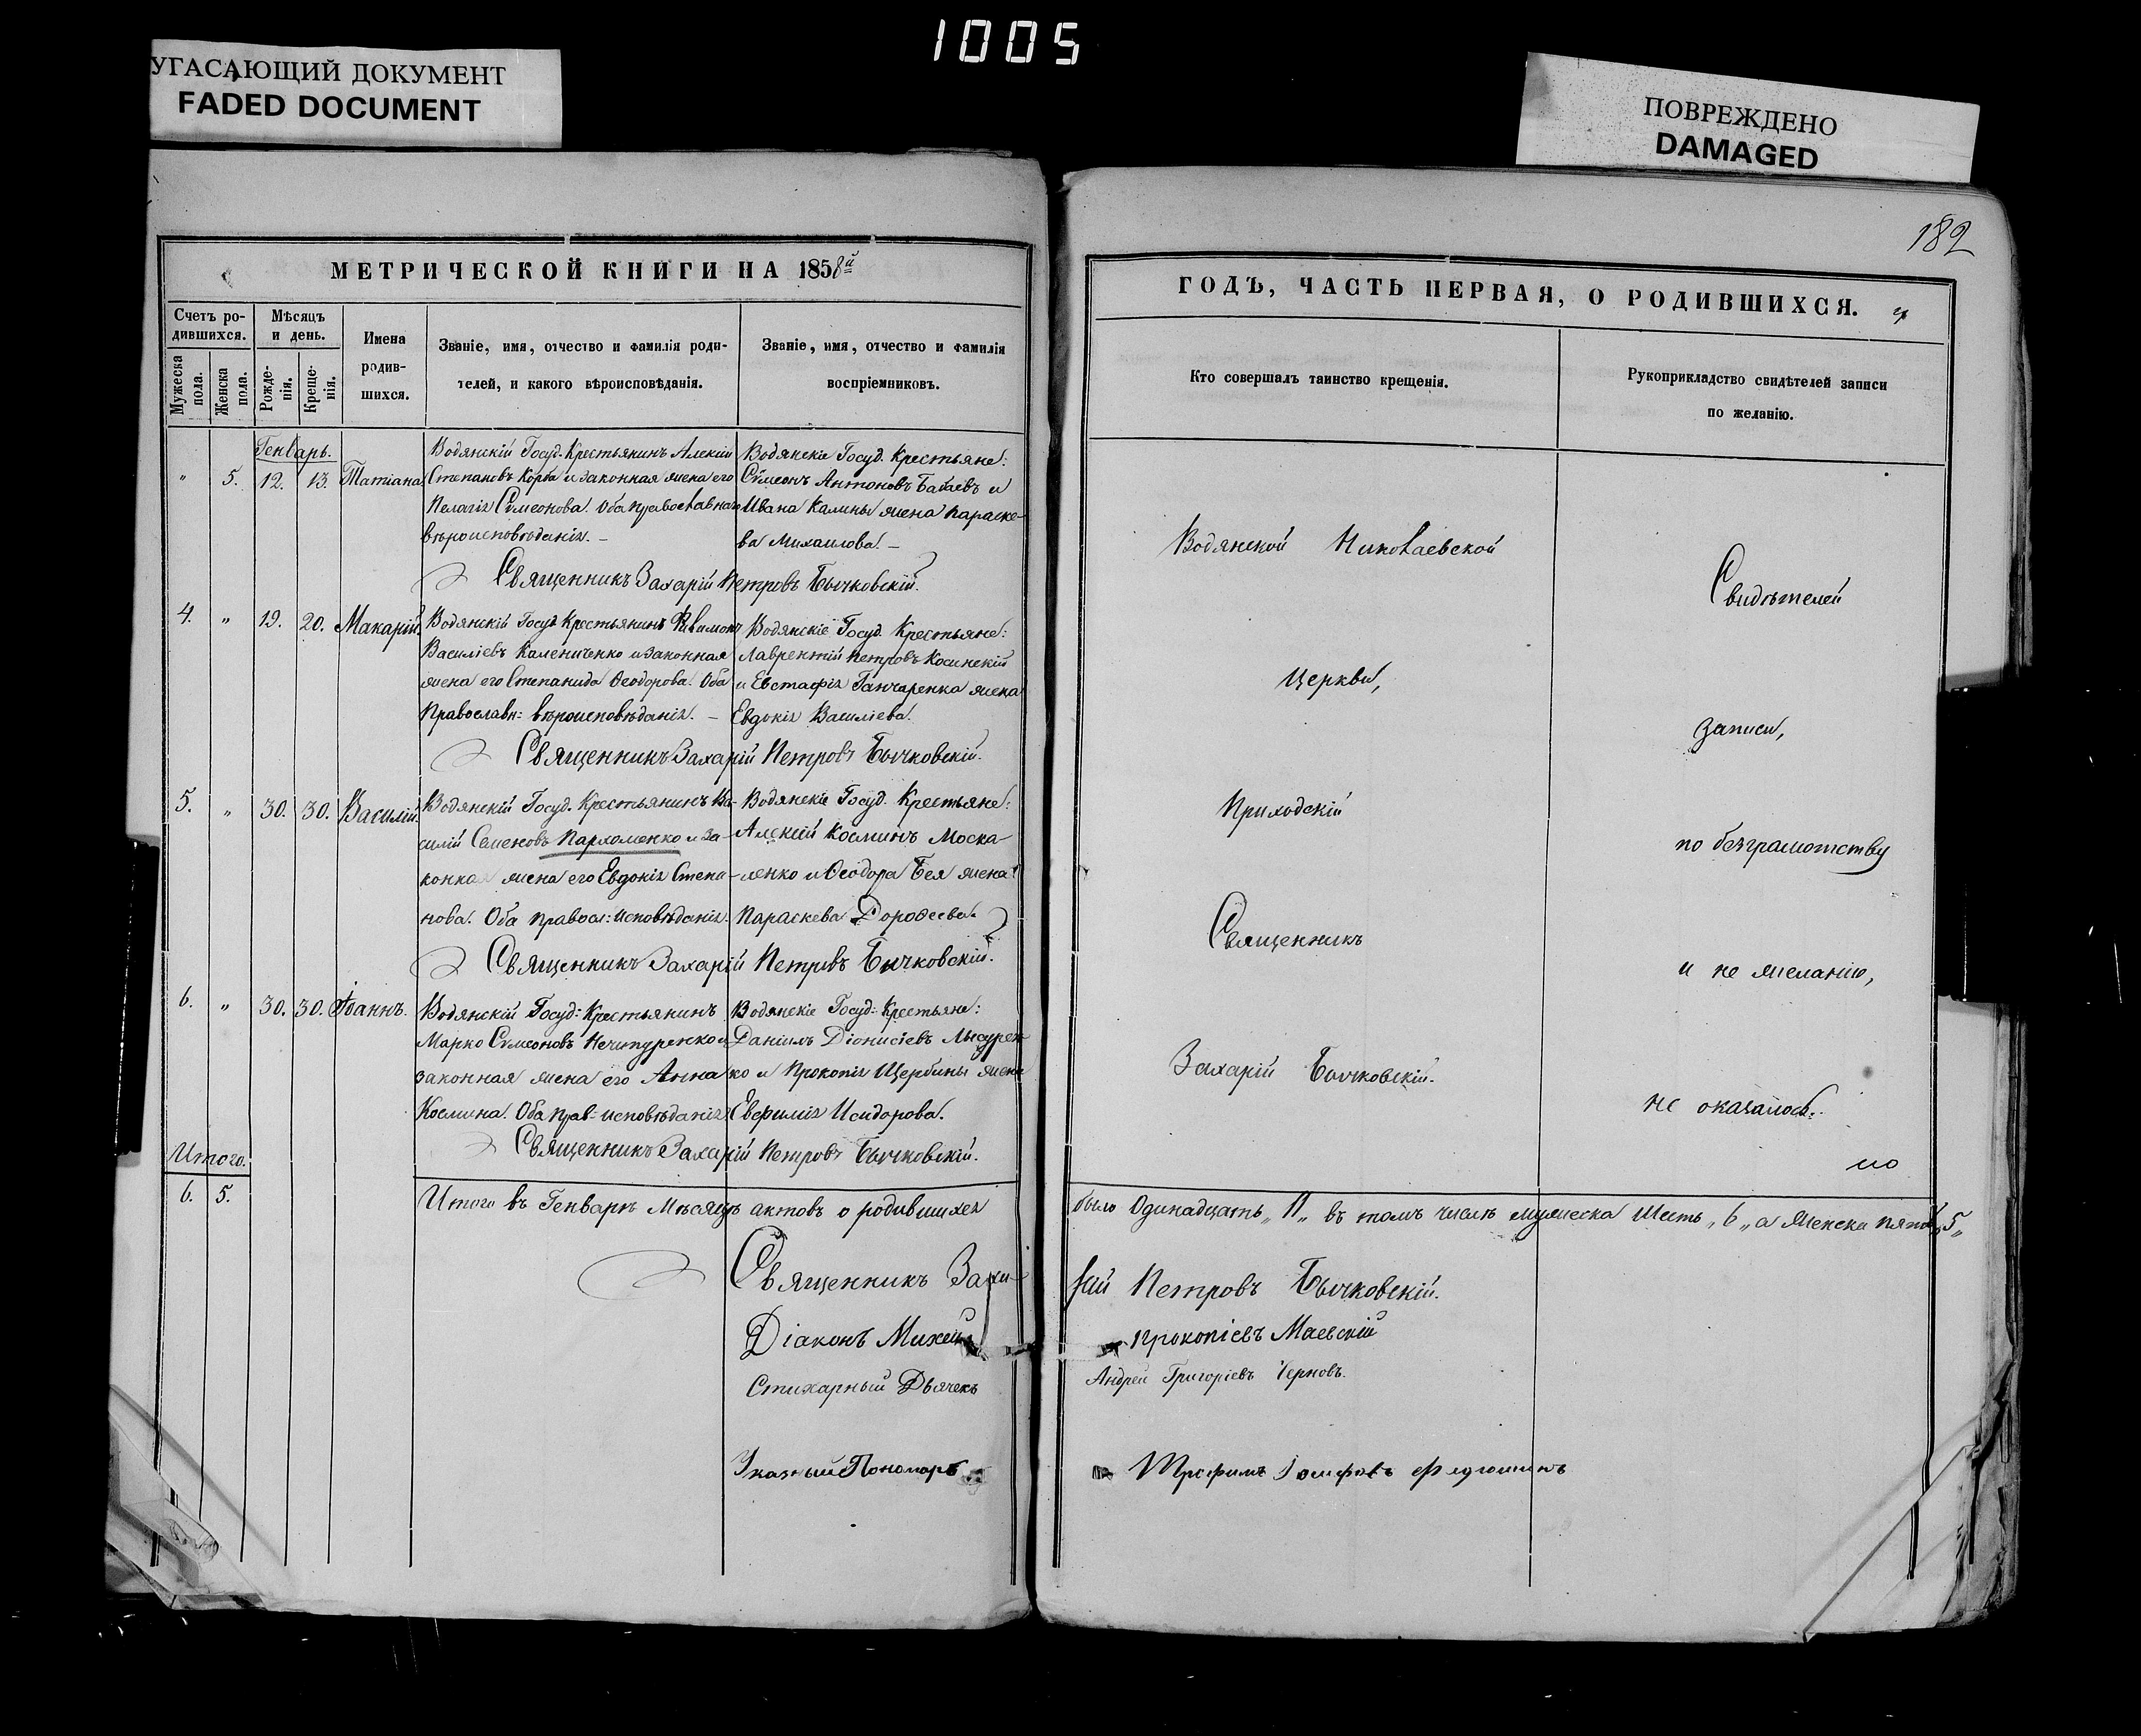 1005
УГАСАЮЩИЙ ДОКУМЕНТ
FADED DOCUMENT
ПОВРЕЖДЕНО
DAMAGED
182
МЕТРИЧЕСКОЙ КНИГИ НА 1858й
Счетъ ро-
дившихся.
Мужеска пола.
Женска пола.
Мѣсяцъ
и день.
Рожде-
нія.
Креще-
нія.
Имена
родив-
шихся.
Званіе, имя, отчество и фамилія роди-
телей, и какого вѣроисповѣданія.
Званіе, имя, отчество и фамилія
воспріемниковъ.
Генварь.
" 5. 12. 13. Татіана
Водянскій Госуд. Крестьянинъ Алексій
Степановъ Корба и законная жена его
Пелагія Сѵмеонова. Оба православнаго
вѣроисповѣданія. –
Водянскіе Госуд. Крестьяне:
Сѵмеонъ Антоновъ Бабаевъ и
Ивана Калины жена Параске-
ва Михаилова. –
Священникъ Захарій Петровъ Бычковскій.
4. " 19. 20. Макарій
Водянскій Госуд Крестьянинъ Филимонъ
Василіевъ Калениченко и законная
жена его Степанида Ѳеодорова. Оба
Православн: вѣроисповѣданія. –
Водянскіе Госуд. Крестьяне:
Лаврентій Петровъ Косинскій
и Евстафія Ганчаренка жена
Евдокія Василіева.
Священникъ Захарій Петровъ Бычковскій.
5. " 30. 30. Василій
Водянскій Госуд. Крестьянинъ Ва-
силій Семеновъ Пархоменко и за-
конная жена его Евдокія Степа-
нова. Оба Правосл: исповѣданія.
Водянскіе Госуд. Крестьяне:
Алексій Косминъ Моска-
ленко и Ѳеодора Бея жена
Параскева Дороѳеева.
Священникъ Захарій Петровъ Бычковскій.
6. " 30. 30. Іоаннъ.
Водянскій Госуд: Крестьянинъ
Марко Сѵмеоновъ Нечипуренко и
законная жена его Анна
Космина. Оба Прав: исповѣданія.
Водянскіе Госуд: Крестьяне:
Даніилъ Діонисіевъ
ко и Прокопія Щербины жена
Евфимія Исидорова.
Священникъ Захарій Петровъ Бычковскій.
Итого.
6. 5.
Итого въ Генварѣ Мѣсяцѣ актовъ о родившихся
Священникъ Заха-
Діаконъ
Стихарный Дьячекъ
Указный Пономарь
ГОДЪ, ЧАСТЬ ПЕРВАЯ, О РОДИВШИХСЯ.
Кто совершалъ таинство крещенія.
Рукоприкладство свидѣтелей записи
по желанію.
Водянской Николаевской
Церкви,
Приходскій
Священникъ
Захарій Бычковскій.
Свидѣтелей
записи,
по безграмотству
и не желанію,
не оказалось.
было Одинадцать „11„ въ томъ числѣ мужеска Шесть „6„ а Женска пять „5„
рій Петровъ Бычковскій.
Прокопіевъ Маевскій
Андрей Григоріевъ Черновъ.
Трофимъ Іосифовъ